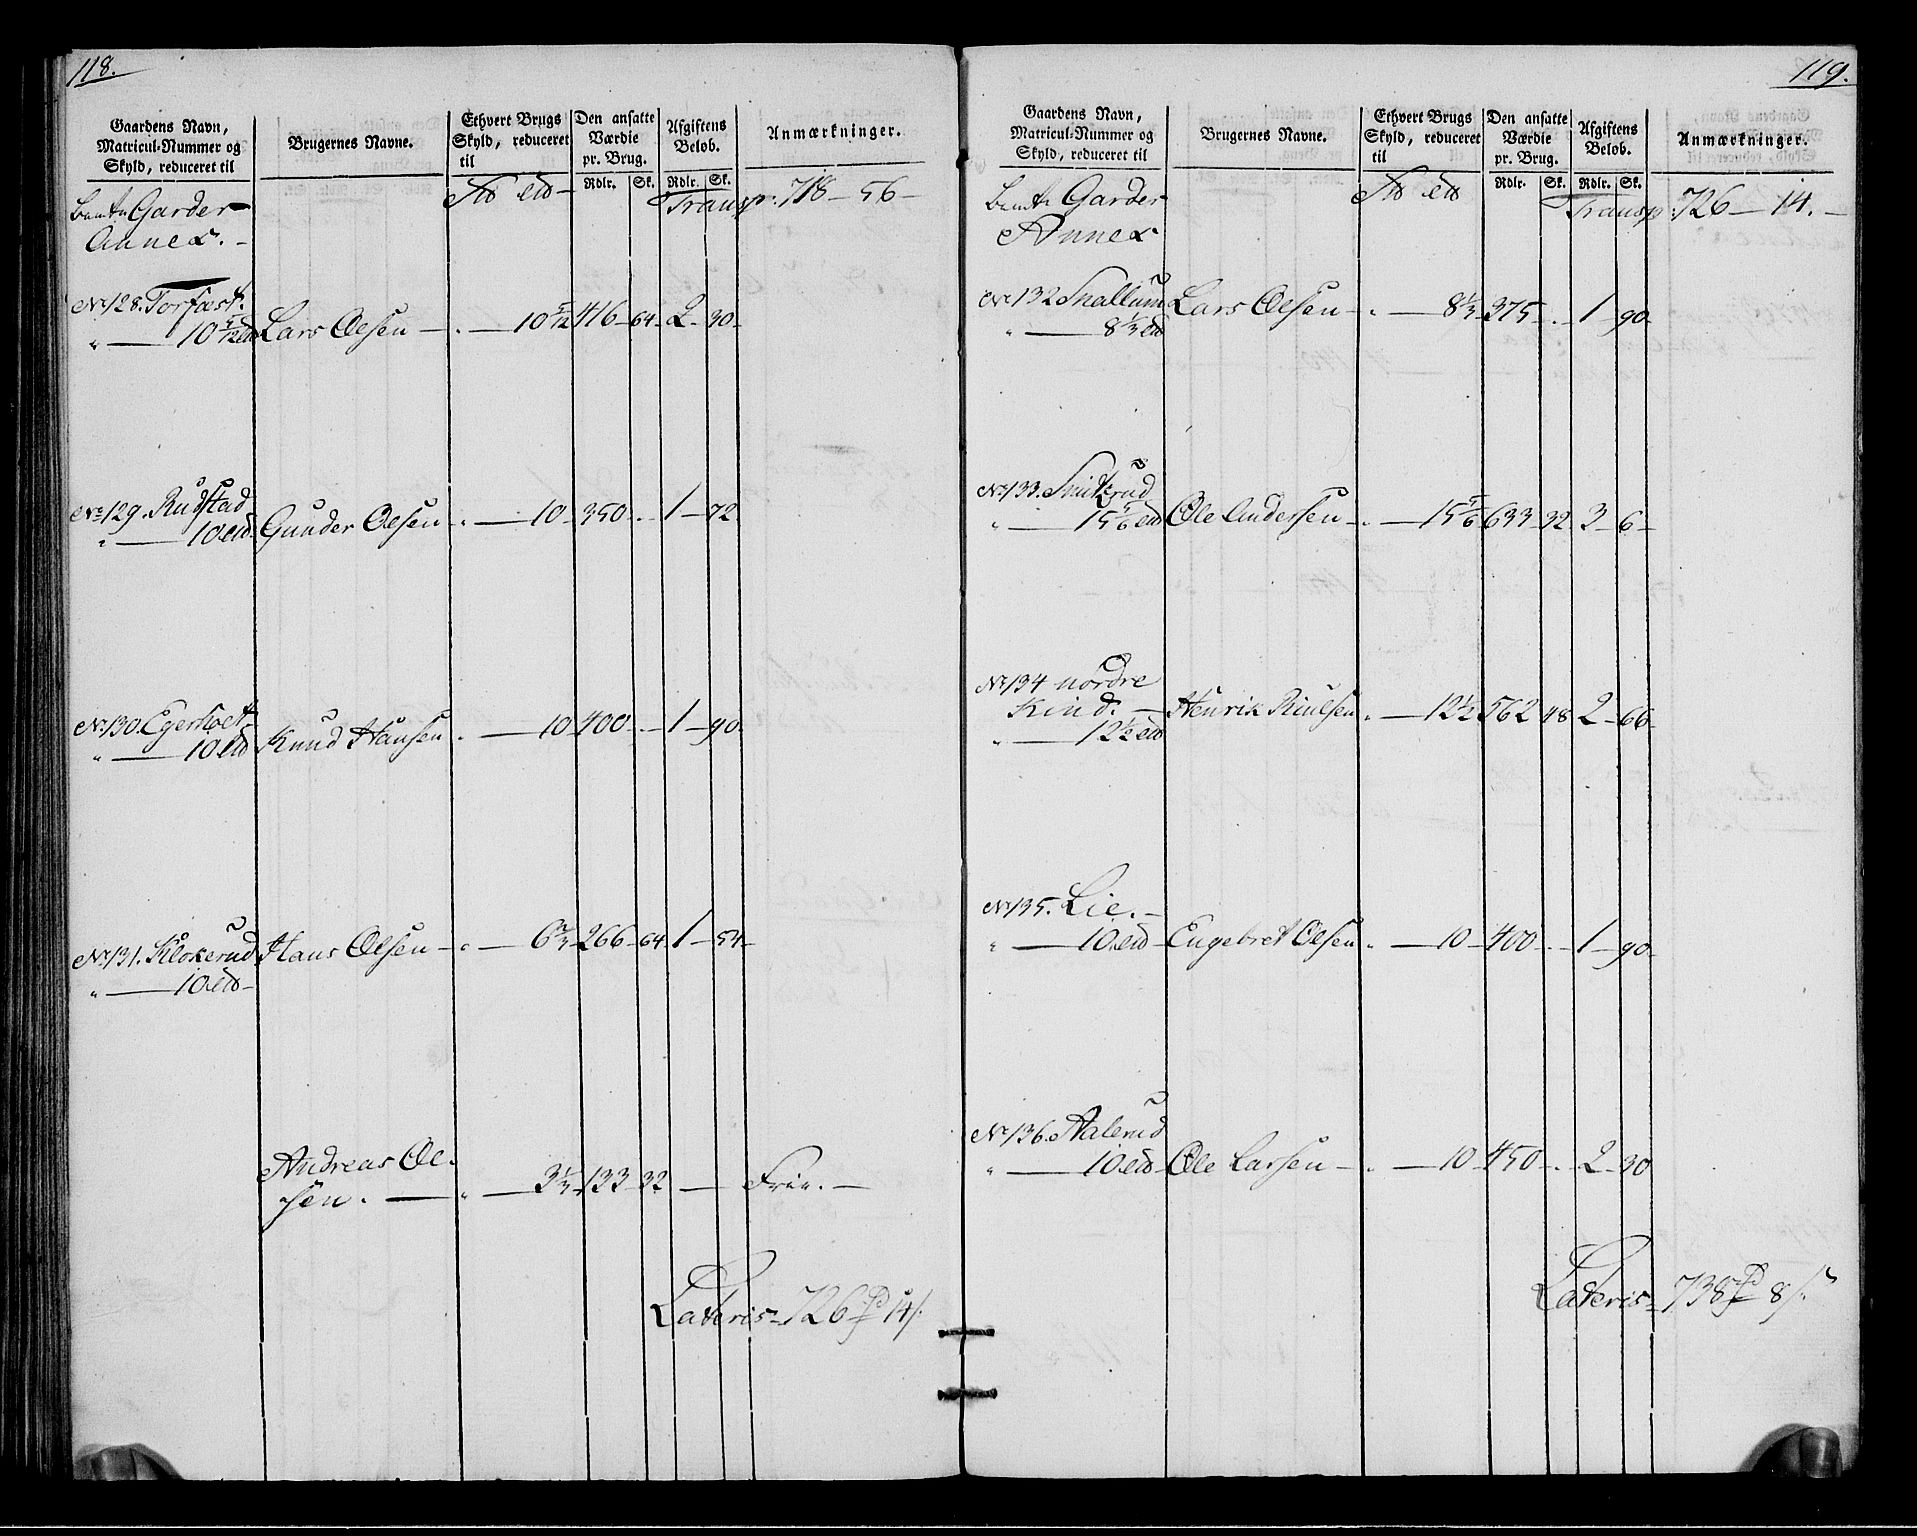 118.
Gaardens Navn,
Matricul-Nummer og
Skyld, reduceret til
Brugernes Navne.
Ethvert Brugs
Skyld, reduceret
til
Den ansatte
Værdie
pr. Brug.
Rdlr. Sk.
Afgiftens
Beløb.
Rdlr. Sk.
Anmærkninger.
Garder
Annex. -
Transp: 718 - 56 -
No 128. Torfæst.
" — 10 5/12 Lars Olsen - " — 10 5/12 416 - 64 - 2 - 30 -
No 129. Rudstad
" — 10 Gunder Olsen - " — 10 - 350 - " - 1 - 72
No 130. Egerholt
" — 10 Knud Hansen " — 10 - 400 - " - 1 - 90 -
No 131. Klokerud Hans Olsen - " — 6 2/3 - 266 - 64 - 1 - 54 -
" — 10
Andreas Ol-
sen. — " — 3 1/3 - 133 - 32 — Frie. —
Lateris - 726 14
119.
Gaardens Navn,
Matricul-Nummer og
Skyld, reduceret til
Brugernes Navne.
Ethvert Brugs
Skyld, reduceret
til
Den ansatte
Værdie
pr. Brug.
Rdlr. Sk.
Afgiftens
Beløb.
Rdlr. Sk.
Anmærkninger.
Garder
Annex
Transp: 726 - 14. -
No 132 Snallum Lars Olsen - " — 8 1/3 - 375 - " - 1 - 90 -
" — 8 1/3
No 133. Snikrud
" — 15 5/6 Ole Andersen - " — 15 5/6 633 - 32 3 - 6 -
No 134 nordre
Kind. - Henrik " — 12 1/2 562 48 - 2 - 66 -
" — 12 1/2
No 135. Lie. -
" — 10 - Engebret Olsen " — 10 - 400 - " - 1 - 90 -
No 136. Aalerud
" — 10 - Ole Larsen - " — 10 - 450 - " 2 - 30
Lateris - 738 8